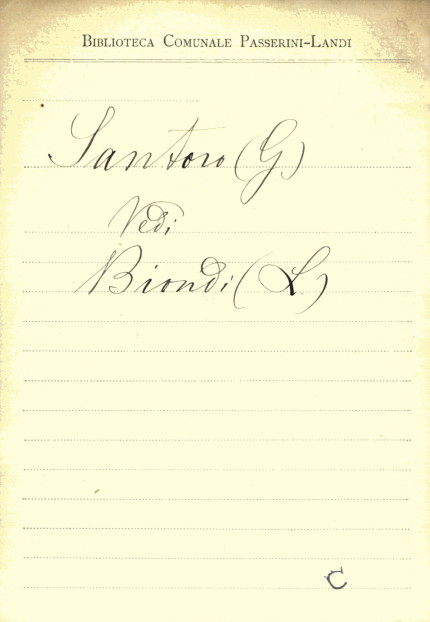 BIBLIOTECA COMUNALE PASSERINI-LANDI
Santoro (G)
Vedi
Biondi (L)
C